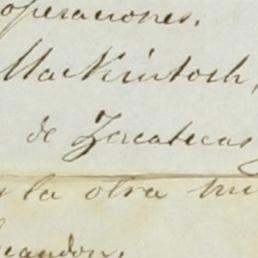 operaciones.
MacKintosh,
de Zacatecas
y la otra mi